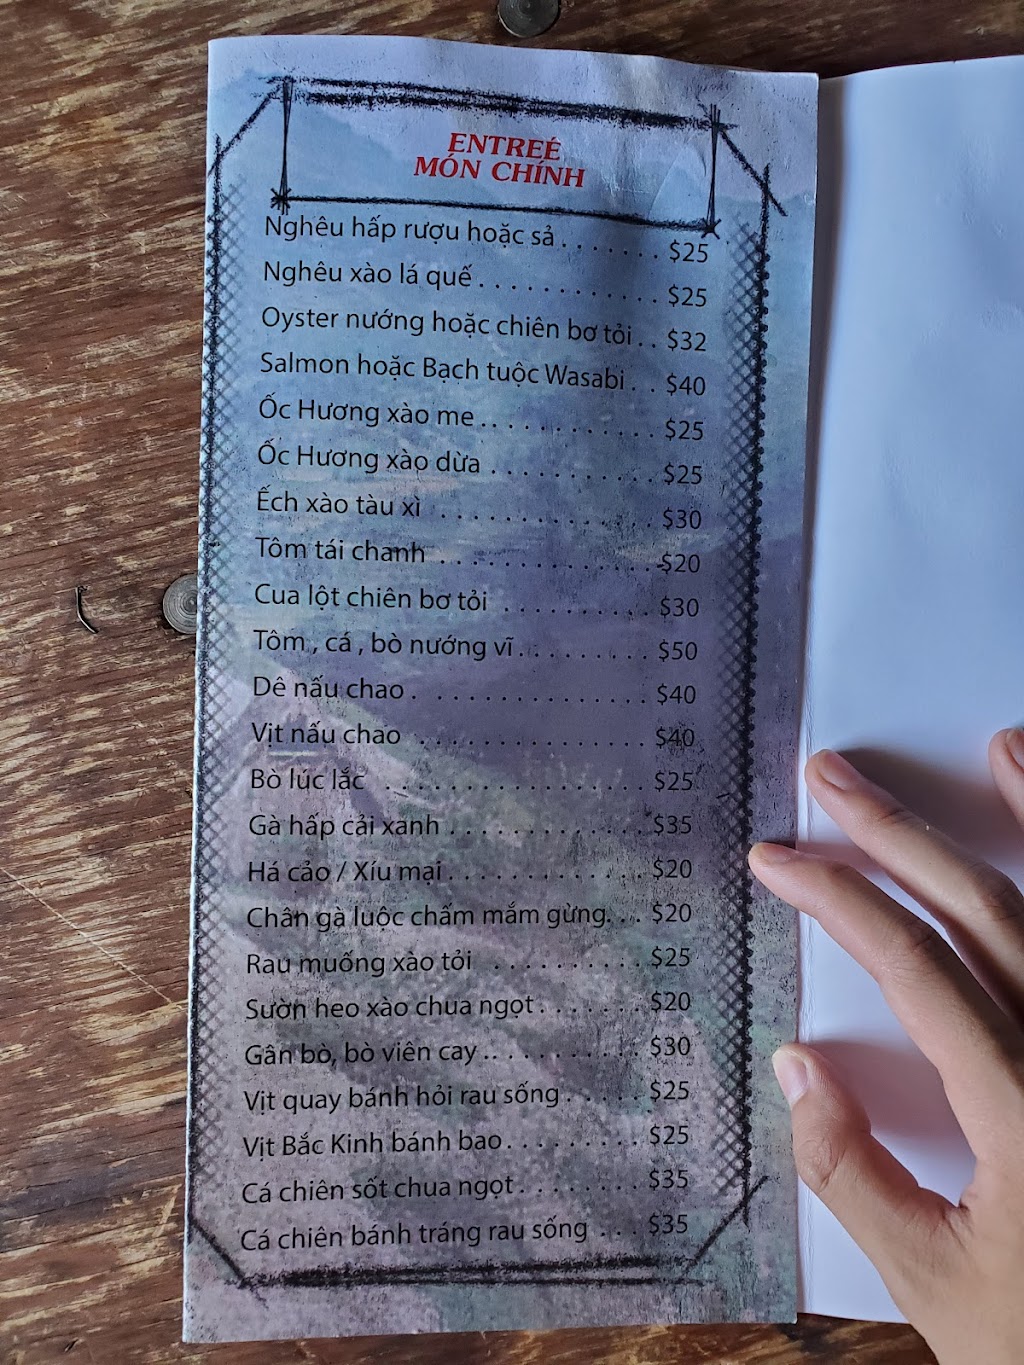 ENTREÉ
MÓN CHÍNH
Nghêu hấp rượu hoặc sả . . . . . . . $25
Nghêu xào lá quế . . . . . . . . . . . . $25
Oyster nướng hoặc chiên bơ tỏi . . $32
Salmon hoặc Bạch tuộc Wasabi . . $40
Ốc Hương xào me . . . . . . . . . . . . $25
Ốc Hương xào dừa . . . . . . . . . . . $25
Ếch xào tàu xì . . . . . . . . . . . . . . $30
Tôm tái chanh . . . . . . . . . . . . . . $20
Cua lột chiên bơ tỏi . . . . . . . . . . $30
Tôm , cá , bò nướng vĩ . . . . . . . . . $50
Dê nấu chao . . . . . . . . . . . . . . . $40
Vịt nấu chao . . . . . . . . . . . . . . . $40
Bò lúc lắc . . . . . . . . . . . . . . . . . $25
Gà hấp cải xanh . . . . . . . . . . . . . $35
Há cảo / Xíu mại . . . . . . . . . . . . . $20
Chân gà luộc chấm mắm gừng. . . $20
Rau muống xào tỏi . . . . . . . . . . $25
Sườn heo xào chua ngọt . . . . . . . $20
Gân bò, bò viên cay . . . . . . . . . . . $30
Vịt quay bánh hỏi rau sống . . . . . $25
Vịt Bắc Kinh bánh bao . . . . . . . . . $25
Cá chiên sốt chua ngọt . . . . . . . . $35
Cá chiên bánh tráng rau sống . . . $35